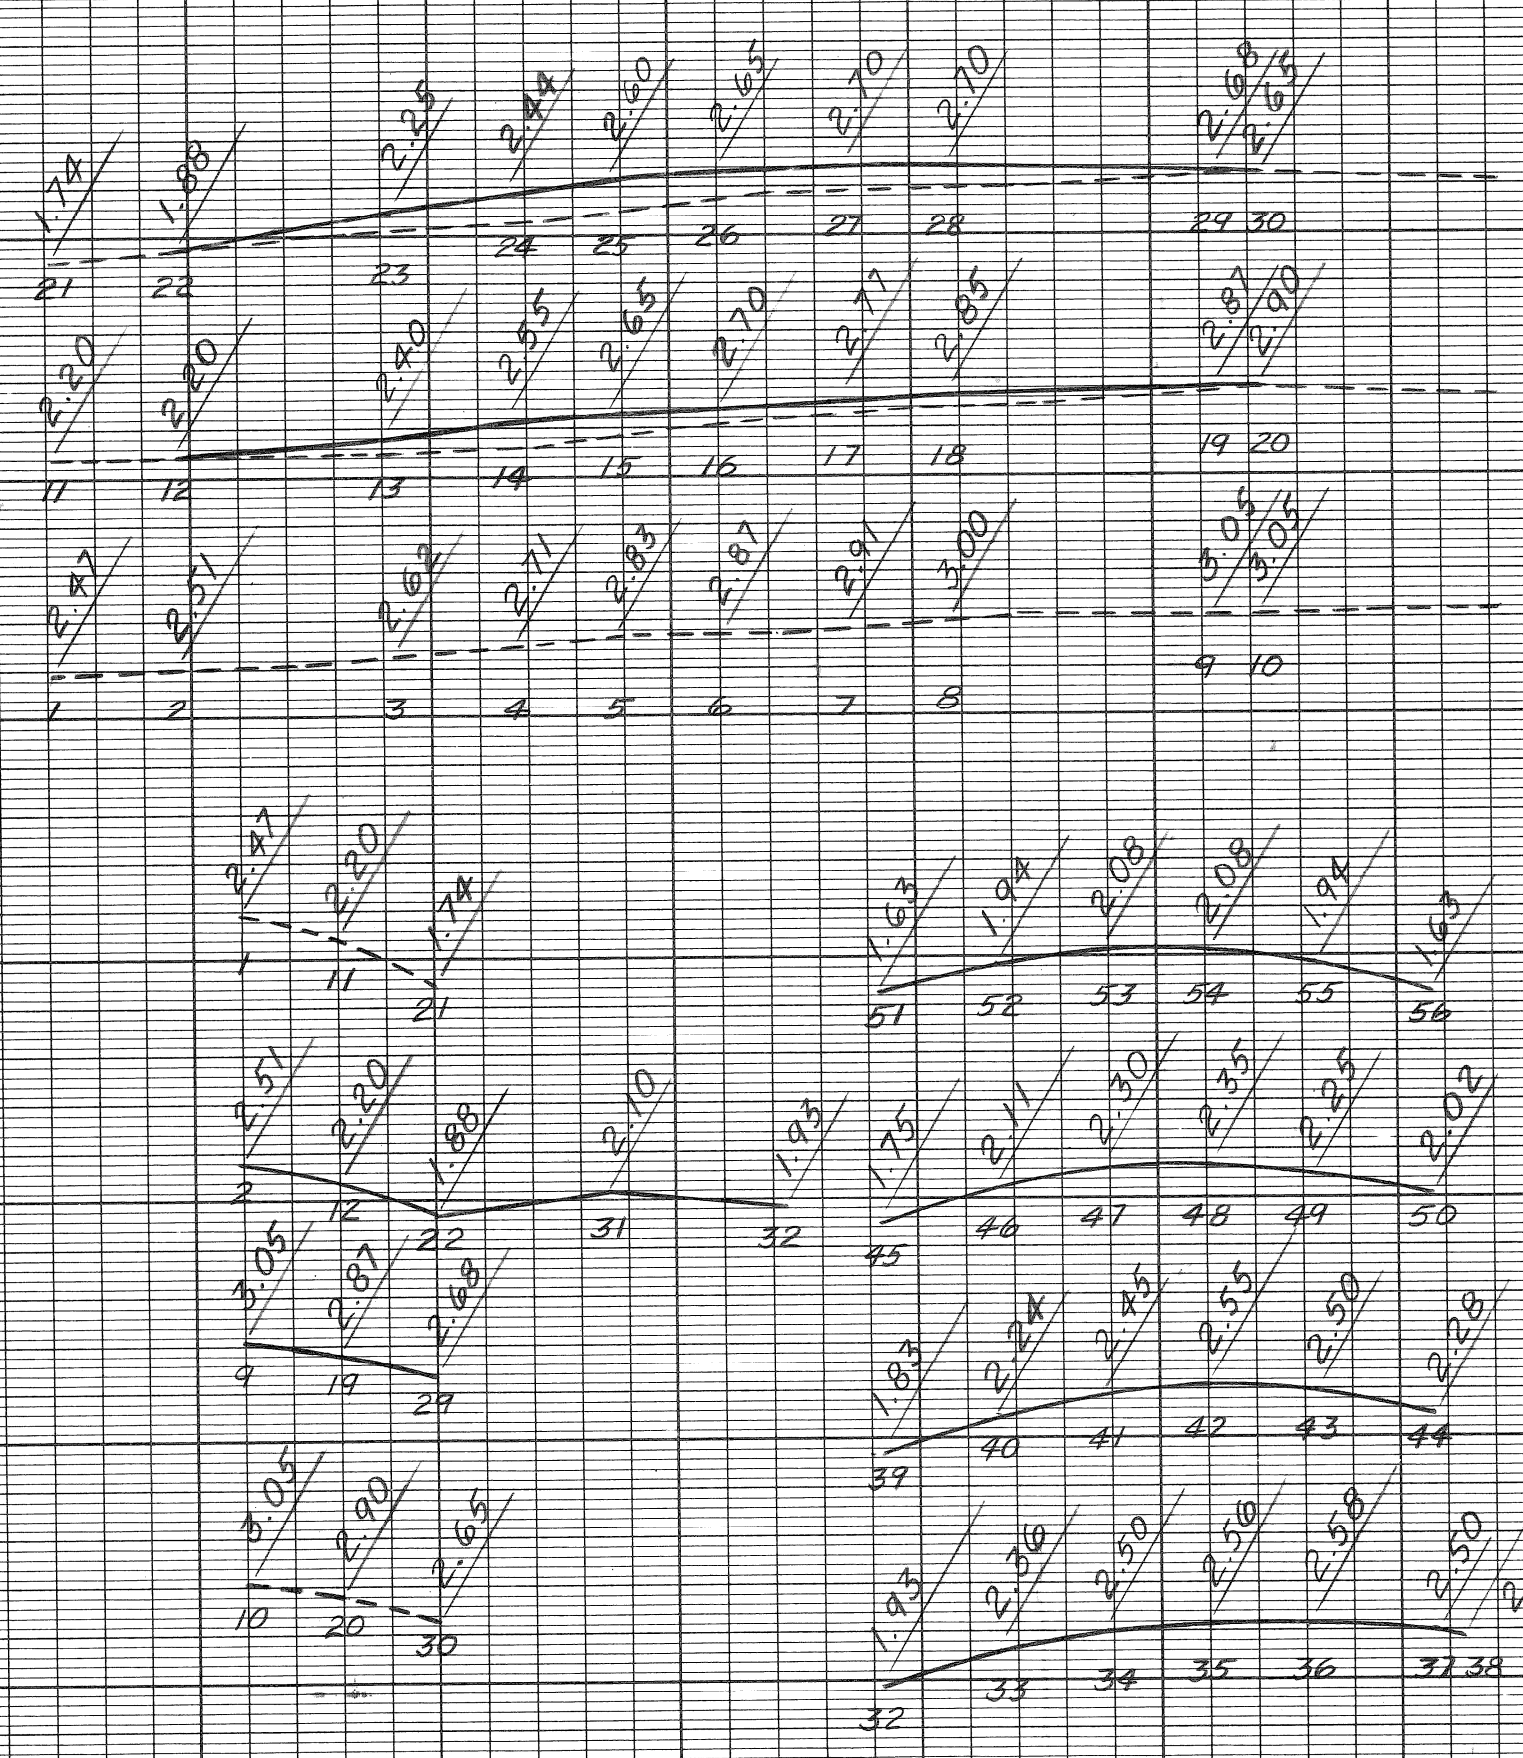 1.74 1.88 2.25 2.44 2.60 2.65 2.70 2.70 2.68 2.65
21 22 23 24 25 26 27 28 29 30
2.20 2.20 2.40 2.55 2.65 2.70 2.77 2.85 2.87 2.90
11 12 13 14 15 16 17 18 19 20
2.47 2.51 2.62 2.71 2.83 2.87 2.91 3.00 3.05 3.05
1 2 3 4 5 6 7 8 9 10
2.47 2.20 1.74
1 11 21
1.63 1.94 2.08 2.08 1.94 1.63
51 52 53 54 55 56
2.51 2.20 1.88 2.10 1.93
2 12 22 31 32
1.75 2.11 2.30 2.35 2.25 2.02
45 46 47 48 49 50
3.05 2.87 2.68
9 19 29
1.83 2.24 2.45 2.55 2.50 2.28
39 40 41 42 43 44
3.05 2.90 2.65
10 20 30
1.93 2.36 2.50 2.56 2.58 2.50 2
32 33 34 35 36 37 38